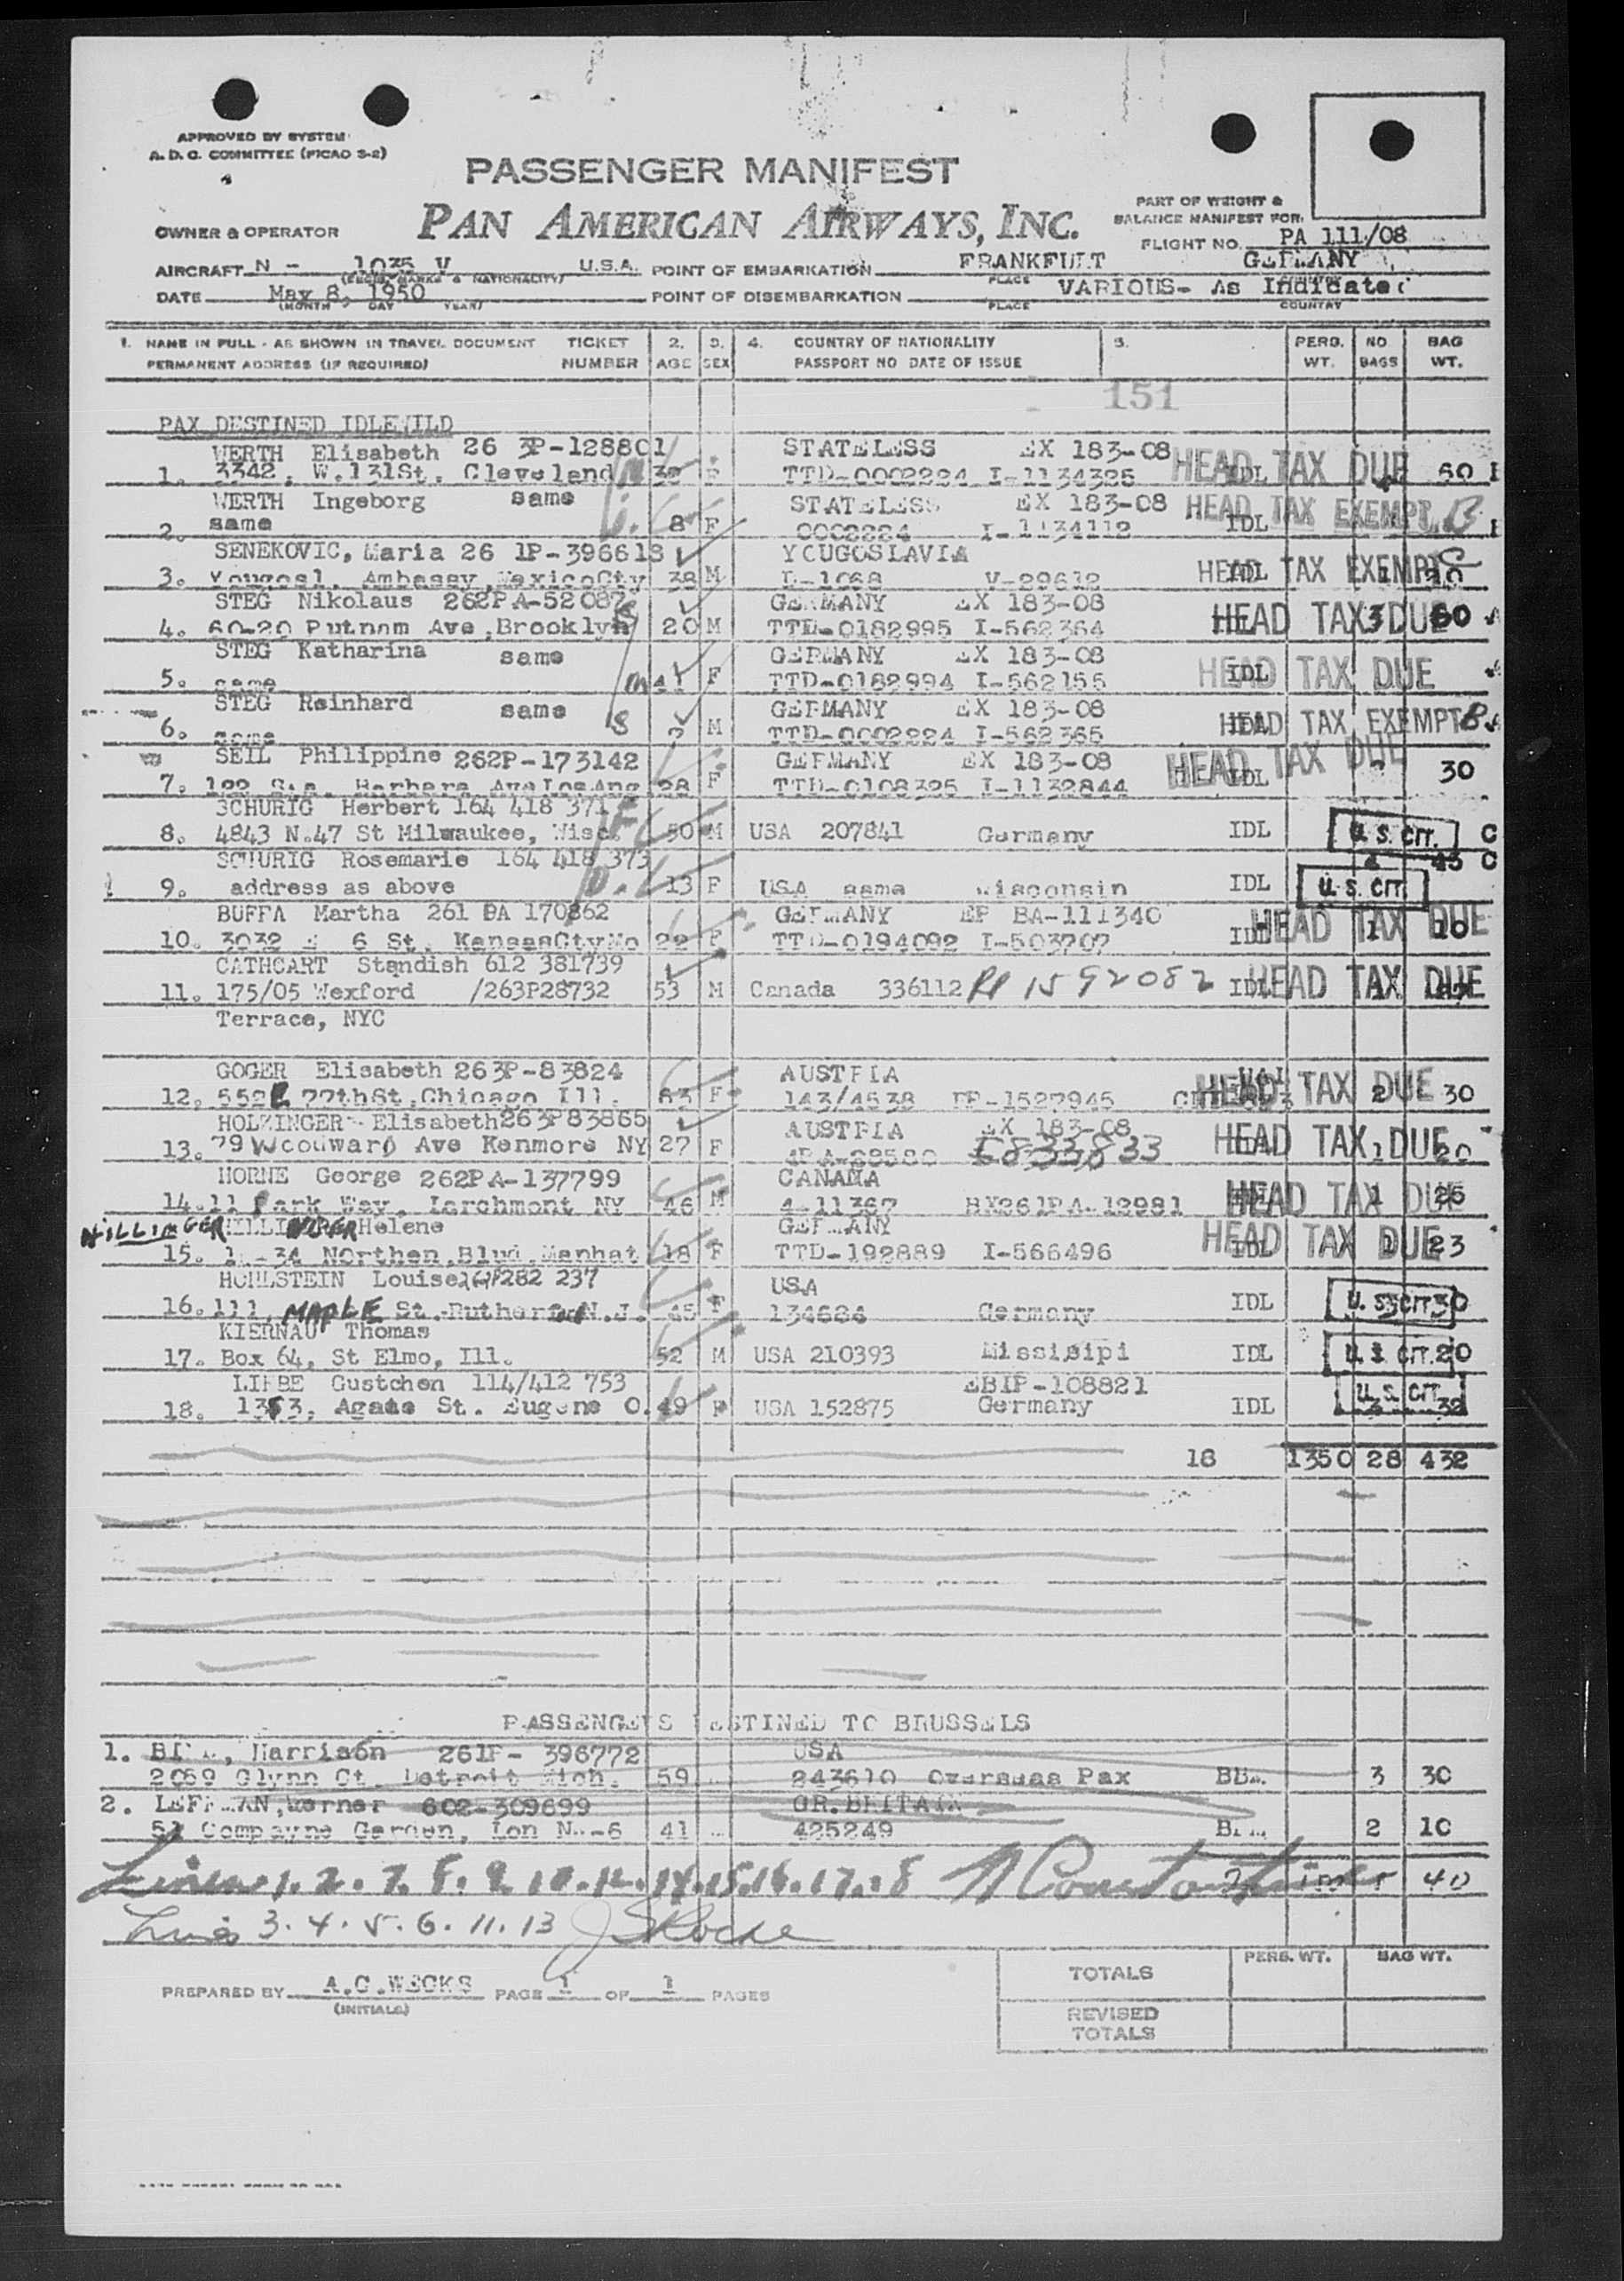 APPROVED BY SYSTEM
A. D. C. COMMITTEE (PICAO S-2)
PASSENGER MANIFEST
PAN AMERICAN AIRWAYS, INC.
OWNER & OPERATOR
PART OF WEIGHT &
BALANCE MANIFEST FOR:
FLIGHT NO. PA 111/08
AIRCRAFT N - 1035 V U.S.A. POINT OF EMBARKATION FRANKFURT GERMANY
DATE May 8, 1950 POINT OF DISEMBARKATION VARIOUS- As Indicated
(MONTH DAY YEAR) PLACE COUNTRY
1. NAME IN FULL - AS SHOWN IN TRAVEL DOCUMENT TICKET 2. 3. 4. COUNTRY OF NATIONALITY 5. PERS. NO BAG
PERMANENT ADDRESS (IF REQUIRED) NUMBER AGE SEX PASSPORT NO DATE OF ISSUE WT. BAGS WT.
151
PAX DESTINED IDLEWILD
WERTH Elisabeth 26 3P-128801 STATELESS EX 183-08 HEAD TAX DUE
1. 3342, W.131St. Cleveland F TTD-0002224 I-1134325 IDL 60
WERTH Ingeborg same STATELESS EX 183-08 HEAD TAX EXEMPT B
2. same 8 F 0002224 I-1134112 IDL
SENEKOVIC, Maria 26 1P-396618 YOUGOSLAVIA
3. Yougosl. Ambassy MexicoCty 38 M D-1068 V-29612 IDL HEAD TAX EXEMPT C 20
STEG Nikolaus 262PA-52087 GERMANY EX 183-08
4. 60-20 Putnam Ave, Brooklyn 20 M TTD-0182995 I-562364 HEAD TAX DUE 3 60
STEG Katharina same GERMANY EX 183-08
5. same F TTD-0182994 I-562155 IDL HEAD TAX DUE
STEG Reinhard same GERMANY EX 183-08
6. same M TTD-0002224 I-562365 IDL HEAD TAX EXEMPT B
SEIL Philippine 262P-173142 GERMANY EX 183-08 HEAD TAX DUE
7. 122 Barbara Ave LosAng 28 F TTD-0108325 I-1132844 IDL 30
SCHURIG Herbert 164 418 371
8. 4843 N.47 St Milwaukee, Wisc. 50 M USA 207841 Germany IDL U. S. CIT. C
SCHURIG Rosemarie 164 418 373 45 C
9. address as above 13 F USA same Wisconsin IDL U. S. CIT.
BUFFA Martha 261 PA 170862 GERMANY EP BA-111340
10. 3032 E 6 St. KansasCtyMo 22 F TTD-0194092 I-503707 IDL HEAD TAX DUE 1 10
CATHCART Standish 612 381739
11. 175/05 Wexford /263P28732 53 M Canada 336112 RP 1592082 IDL HEAD TAX DUE
Terrace, NYC
GOGER Elisabeth 263P-83824 AUSTRIA
12. 552 E 77thSt, Chicago Ill. 63 F 143/4538 RP-1527945 HEAD TAX DUE 2 30
HOLZINGER- Elisabeth 263P83865 AUSTRIA EX 183-08
13. 79 Woodward Ave Kenmore NY 27 F E833833 HEAD TAX DUE 1 20
HORNE George 262PA-137799 CANADA
14. 11 Park Way, Larchmont NY 46 M 4-11367 BY261PA-12981 HEAD TAX DUE 1 25
NILLINGER Helene GERMANY
15. Northen Blvd Manhat 18 F TTD-192889 I-566496 IDL HEAD TAX DUE 1 23
HOHLSTEIN Louise 282 237 USA
16. 111, MAPLE St. Rutherford N.J. 45 F 134684 Germany IDL U. S. CIT. 30
KIERNAU Thomas
17. Box 64, St Elmo, Ill. 52 M USA 210393 Missisipi IDL U. S. CIT. 20
LIEBE Gustchen 114/412 753 EBIP-108821
18. 1353, Agate St. Eugene O. 49 F USA 152875 Germany IDL U. S. CIT. 3 32
18 1350 28 432
PASSENGERS DESTINED TO BRUSSELS
1. Harrison 261P- 396772 USA
2069 Glynn Ct. Detroit Mich. 59 243610 Overseas Pax 3 30
2. LEFFMAN, Werner 602-309699 GR. BRITAIN
51 Compayne Garden, Lon N.-6 41 425249 2 10
Lines 1. 2. 7. 8. 9. 10. 12. 14. 15. 16. 17. 18 40
Lines 3. 4. 5. 6. 11. 13
PREPARED BY A.C.WECKS PAGE 1 OF 1 PAGES
(INITIALS)
PERS. WT. BAG WT.
TOTALS
REVISED
TOTALS